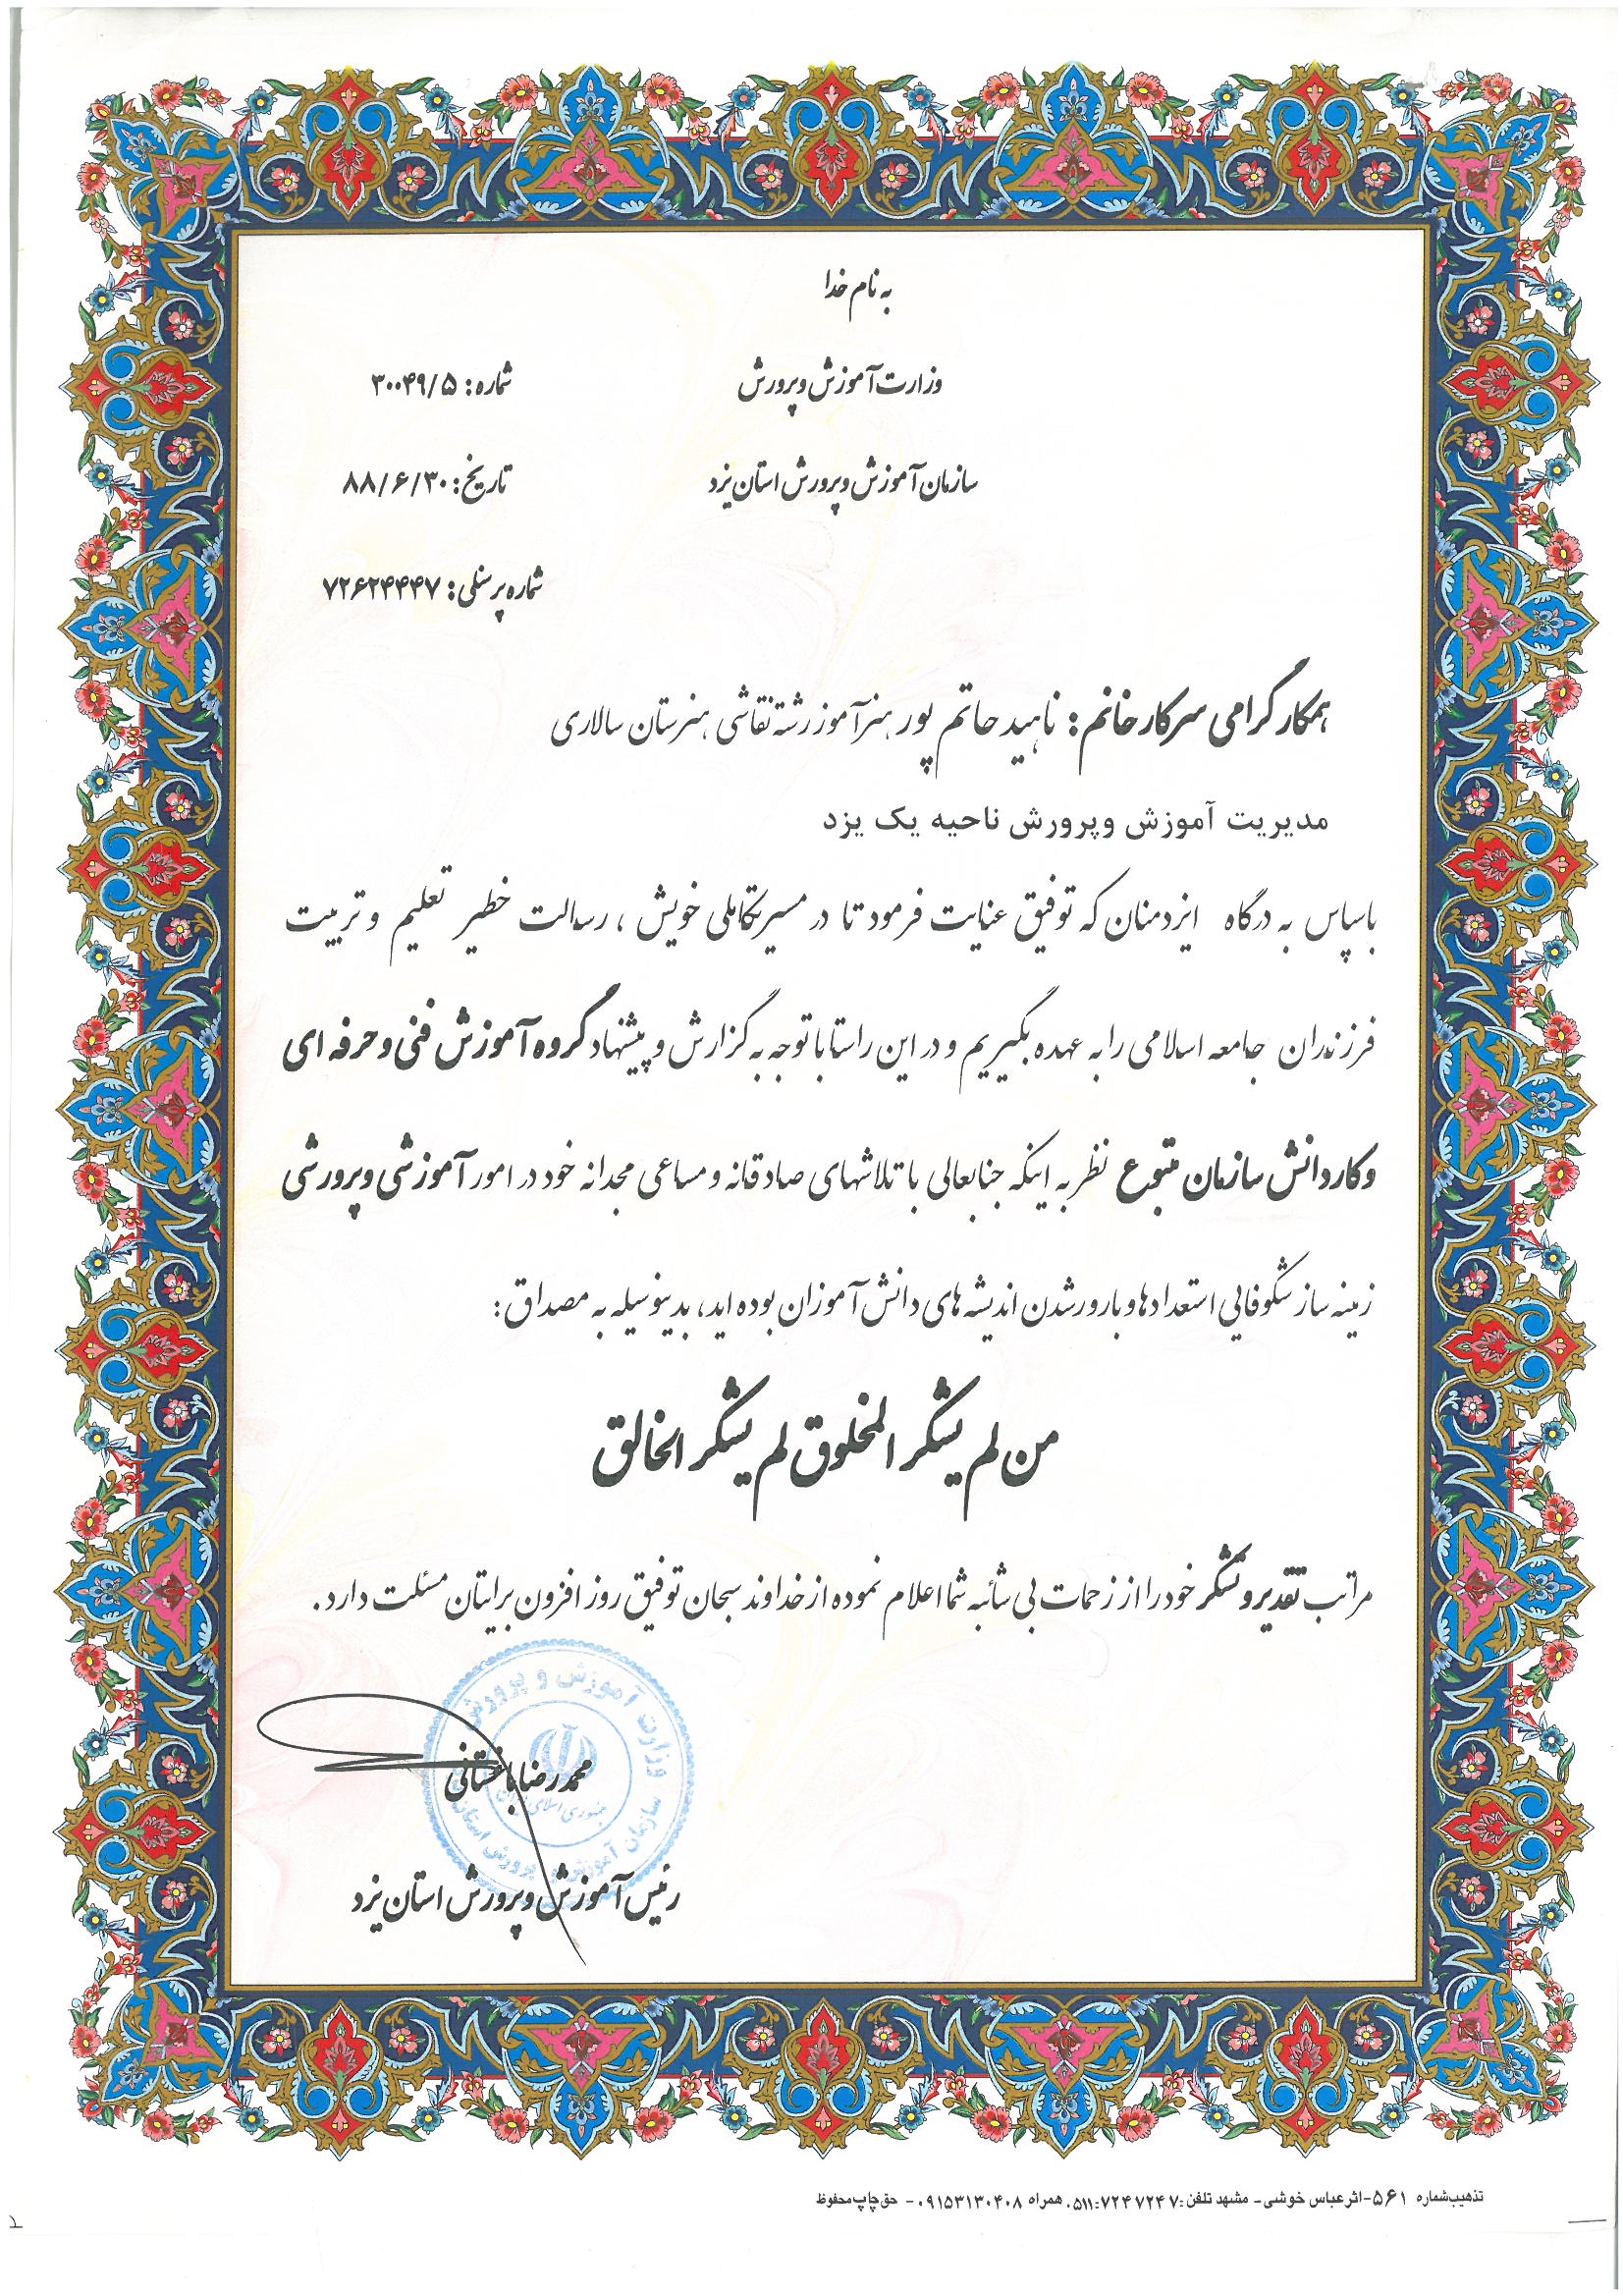 به نام خدا
وزارت آموزش و پرورش
شماره: ۳۰۰۴۹/۵
سازمان آموزش و پرورش استان یزد
تاریخ: ۸۸/۶/۳۰
شماره پرسنلی: ۷۲۶۲۴۴۴۷
همکار گرامی سرکار خانم: ناهید حاتم پور هنرآموز رشته نقاشی هنرستان سالاری
مدیریت آموزش وپرورش ناحیه یک یزد
باسپاس به درگاه ایزدمنان که توفیق عنایت فرمود تا در مسیر تکاملی خویش ، رسالت خطیر تعلیم و تربیت
فرزندران جامعه اسلامی را به عهده بگیریم و در این راستا با توجه به گزارش و پیشنهاد گروه آموزش فنی و حرفه ای
و کاردانش سازمان متبوع نظر به اینکه جنابعالی با تلاشهای صادقانه و مساعی مجدانه خود در امور آموزشی و پرورشی
زمینه ساز شکوفائی استعدادها و بارور شدن اندیشه های دانش آموزان بوده اید، بدینوسیله به مصداق:
من لم یشکر المخلوق لم یشکر الخالق
مراتب تقدیر و تشکر خود را از زحمات بی شائبه شما اعلام نموده از خداوند سبحان توفیق روز افزون برایتان مسئلت دارد.
وزارت آموزش و پرورش
جمهوری اسلامی ایران
سازمان آموزش و پرورش استان
محمدرضا باغستانی
رئیس آموزش و پرورش استان یزد
تذهیب شماره ۵۶۱-اثر عباس خوشی- مشهد تلفن: ۷۲۴۷۲۴۷:۵۱۱. همراه ۰۹۱۵۳۱۳۰۴۰۸- حق چاپ محفوظ